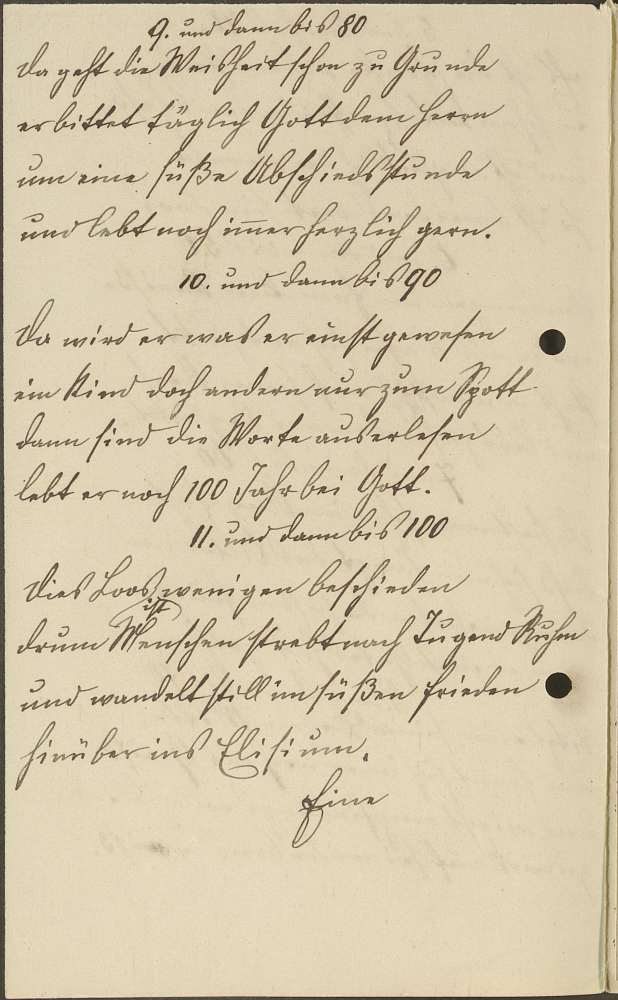 9. und dann bis 80
Da geht die Weisheit schon zu Grunde
erbittet täglich Gott dem Herrn
um eine süße Abschiedsstunde
und lebt noch im̄er herzlich gern.
10. und dann bis 90
Da wird er was er einst gewesen
ein Kind doch andern nur zum Spott
dann sind die Worte auserlesen
lebt er noch 100 Jahr bei Gott.
11. und dann bis 100
Dies Loos ist wenigen beschieden
drum Menschen strebt nach Tugend Ruhm
und wandelt still im süßen Frieden
hinüber ins Elisium.
Fine